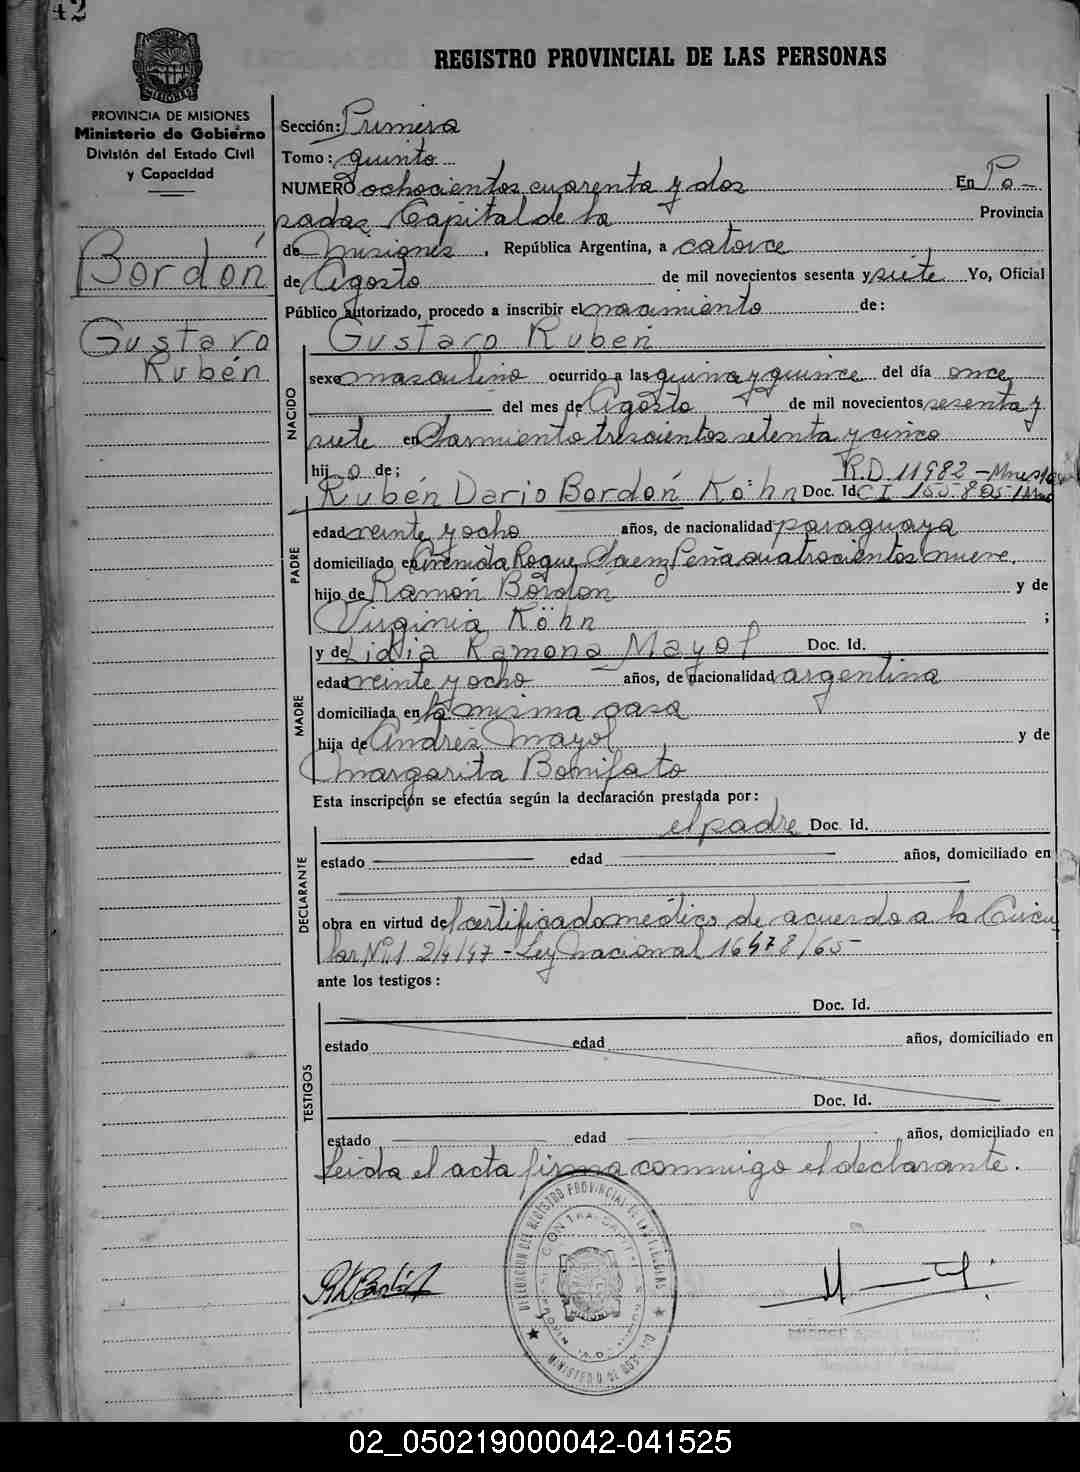 42
REGISTRO PROVINCIAL DE LAS PERSONAS
PROVINCIA DE MISIONES
Ministerio de Gobierno
División del Estado Civil
y Capacidad
Bordón
Gustavo
Rubén
Sección: Primera
Tomo: quinto
NUMERO ochocientos cuarenta y dos En Po-
sadas Capital de la Provincia
de Misiones, República Argentina, a catorce
de Agosto de mil novecientos sesenta y siete Yo, Oficial
Público autorizado, procedo a inscribir el nacimiento de:
Gustavo Rubén
NACIDO
sexo masculino ocurrido a las quince y quince del día once
del mes de Agosto de mil novecientos sesenta y
siete en Sarmiento trescientos setenta y cinco
hijo de; R.D. 11982 - Mnes
Rubén Dario Bordón Köhn Doc. Id. C I 155-805-
PADRE
edad veinte y ocho años, de nacionalidad paraguaya
domiciliado en Avenida Roque Saenz Peña cuatrocientos nueve.
hijo de Ramón Bordón y de
Virginia Köhn ;
y de Lidia Ramona Mayol Doc. Id.
MADRE
edad veinte y ocho años, de nacionalidad argentina
domiciliada en la misma casa
hija de Andrés Mayol y de
Margarita Bonifato
Esta inscripción se efectúa según la declaración prestada por:
el padre Doc. Id.
DECLARANTE
estado edad años, domiciliado en
obra en virtud del certificado médico de acuerdo a la Circu
lar Nº 1 2/4/47 - Ley Nacional 16478/65-
ante los testigos:
TESTIGOS
Doc. Id.
estado edad años, domiciliado en
Doc. Id.
estado edad años, domiciliado en
Leida el acta firma conmigo el declarante.
MINISTERIO DE GOBIERNO
02_050219000042-041525